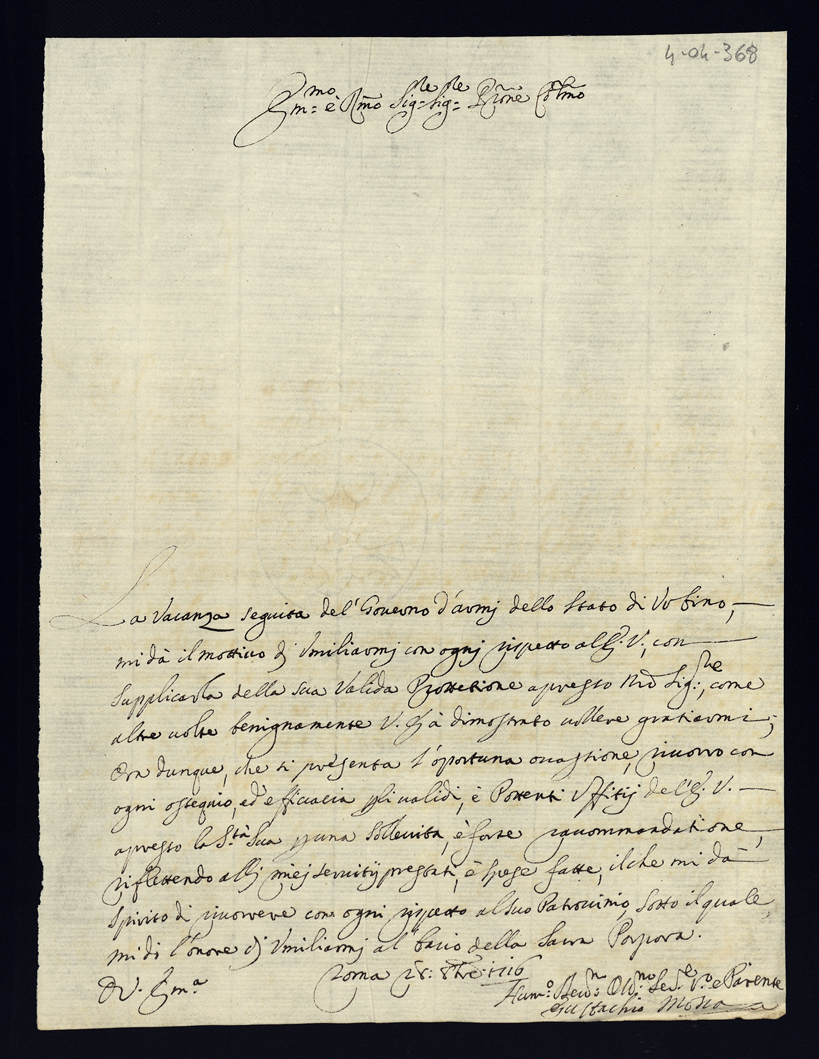 4-04-368
Em:mo è R.mo Sig:re Sig:re P̃rone Col.mo
La Vacanza seguita del' Governo d'armj dello Stato di Urbino,
mi dà il mottivo dj Umiliarmj con ognj rispetto all'E: V., con
supplicarla della sua Valida Prottetione apresso Nrõ Sig:re, come
altre volte benignamente V. E. à dimostrato vollere gratiarmi;
Ora dunque, che si presenta l'oportuna ocastione, ricorro con
ogni ossequio, ed' efficacia pli validi, è Pottenti Uffitij del'E. V.
apresso la S.tà Sua p una sollecita, è forte raccommandatione,
riflettendo allj miej servitij prestati, è spese fatte, il che mi dà
spirito di ricorrere con ogni rispetto al suo Patrocinio, sotto il quale,
mi dj l'onore dj Umiliarmj al' bacio della Sacra Porpora.
Roma 28: 8bre: 1716
D V. Em.a
Hum.o Dev:o Obl.mo Ser.e V.o e Parente
Eustachio